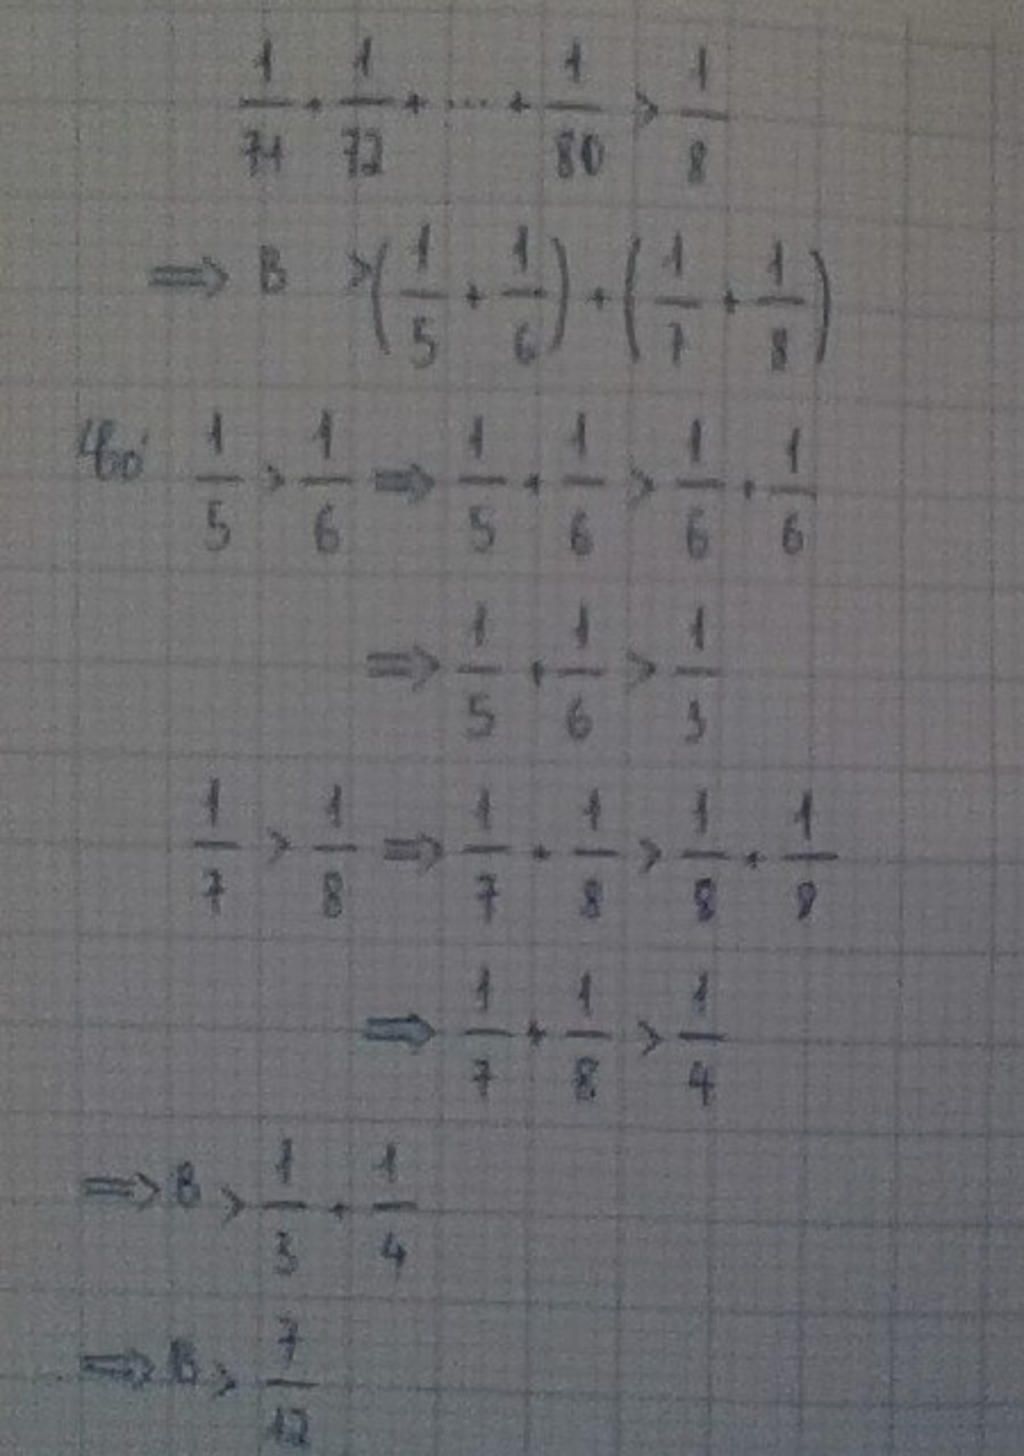 1/71 + 1/72 + ... + 1/80 > 1/8
=> B > (1/5 + 1/6) + (1/7 + 1/8)
1/5 > 1/6 => 1/5 + 1/6 > 1/6 + 1/6
=> 1/5 + 1/6 > 1/3
1/7 > 1/8 => 1/7 + 1/8 > 1/8 + 1/8
=> 1/7 + 1/8 > 1/4
=> B > 1/3 + 1/4
=> B > 7/12